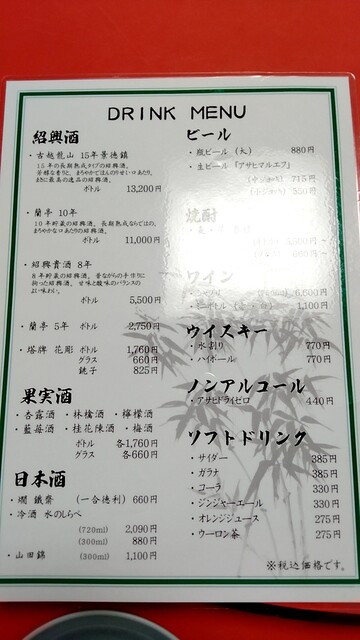 DRINK MENU
紹興酒
・古越龍山 15年景徳鎮
15年の長期熟成タイプの紹興酒。
芳醇な香りと、まろやかでほんのり甘い口あたり。
まさに最高の逸品の紹興酒。
ボトル 13,200円
・蘭亭 10年
10年貯蔵の紹興酒。長期熟成ならではの、
まろやかな口あたりの紹興酒。
ボトル 11,000円
・紹興貴酒 8年
8年貯蔵の紹興酒。昔ながらの手作りに
拘った紹興酒。甘味と酸味のバランスの
よい味わい。
ボトル 5,500円
・蘭亭 5年 ボトル 2,750円
・塔牌 花彫 ボトル 1,760円
グラス 660円
銚子 825円
果実酒
・杏露酒 ・林檎酒 ・檸檬酒
・藍苺酒 ・桂花陳酒 ・梅酒
ボトル 各1,760円
グラス 各660円
日本酒
・燗 鐵齋 (一合徳利) 660円
・冷酒 水のしらべ
(720ml) 2,090円
(300ml) 880円
・山田錦 (300ml) 1,100円
ビール
・瓶ビール (大) 880円
・生ビール「アサヒマルエフ」
(中ジョッキ) 715円
(小ジョッキ) 550円
焼酎
ワイン
6,600円
1,100円
ウイスキー
・水割り 770円
・ハイボール 770円
ノンアルコール
・アサヒドライゼロ 440円
ソフトドリンク
・サイダー 385円
・ガラナ 385円
・コーラ 330円
・ジンジャーエール 330円
・オレンジジュース 275円
・ウーロン茶 275円
※税込価格です。